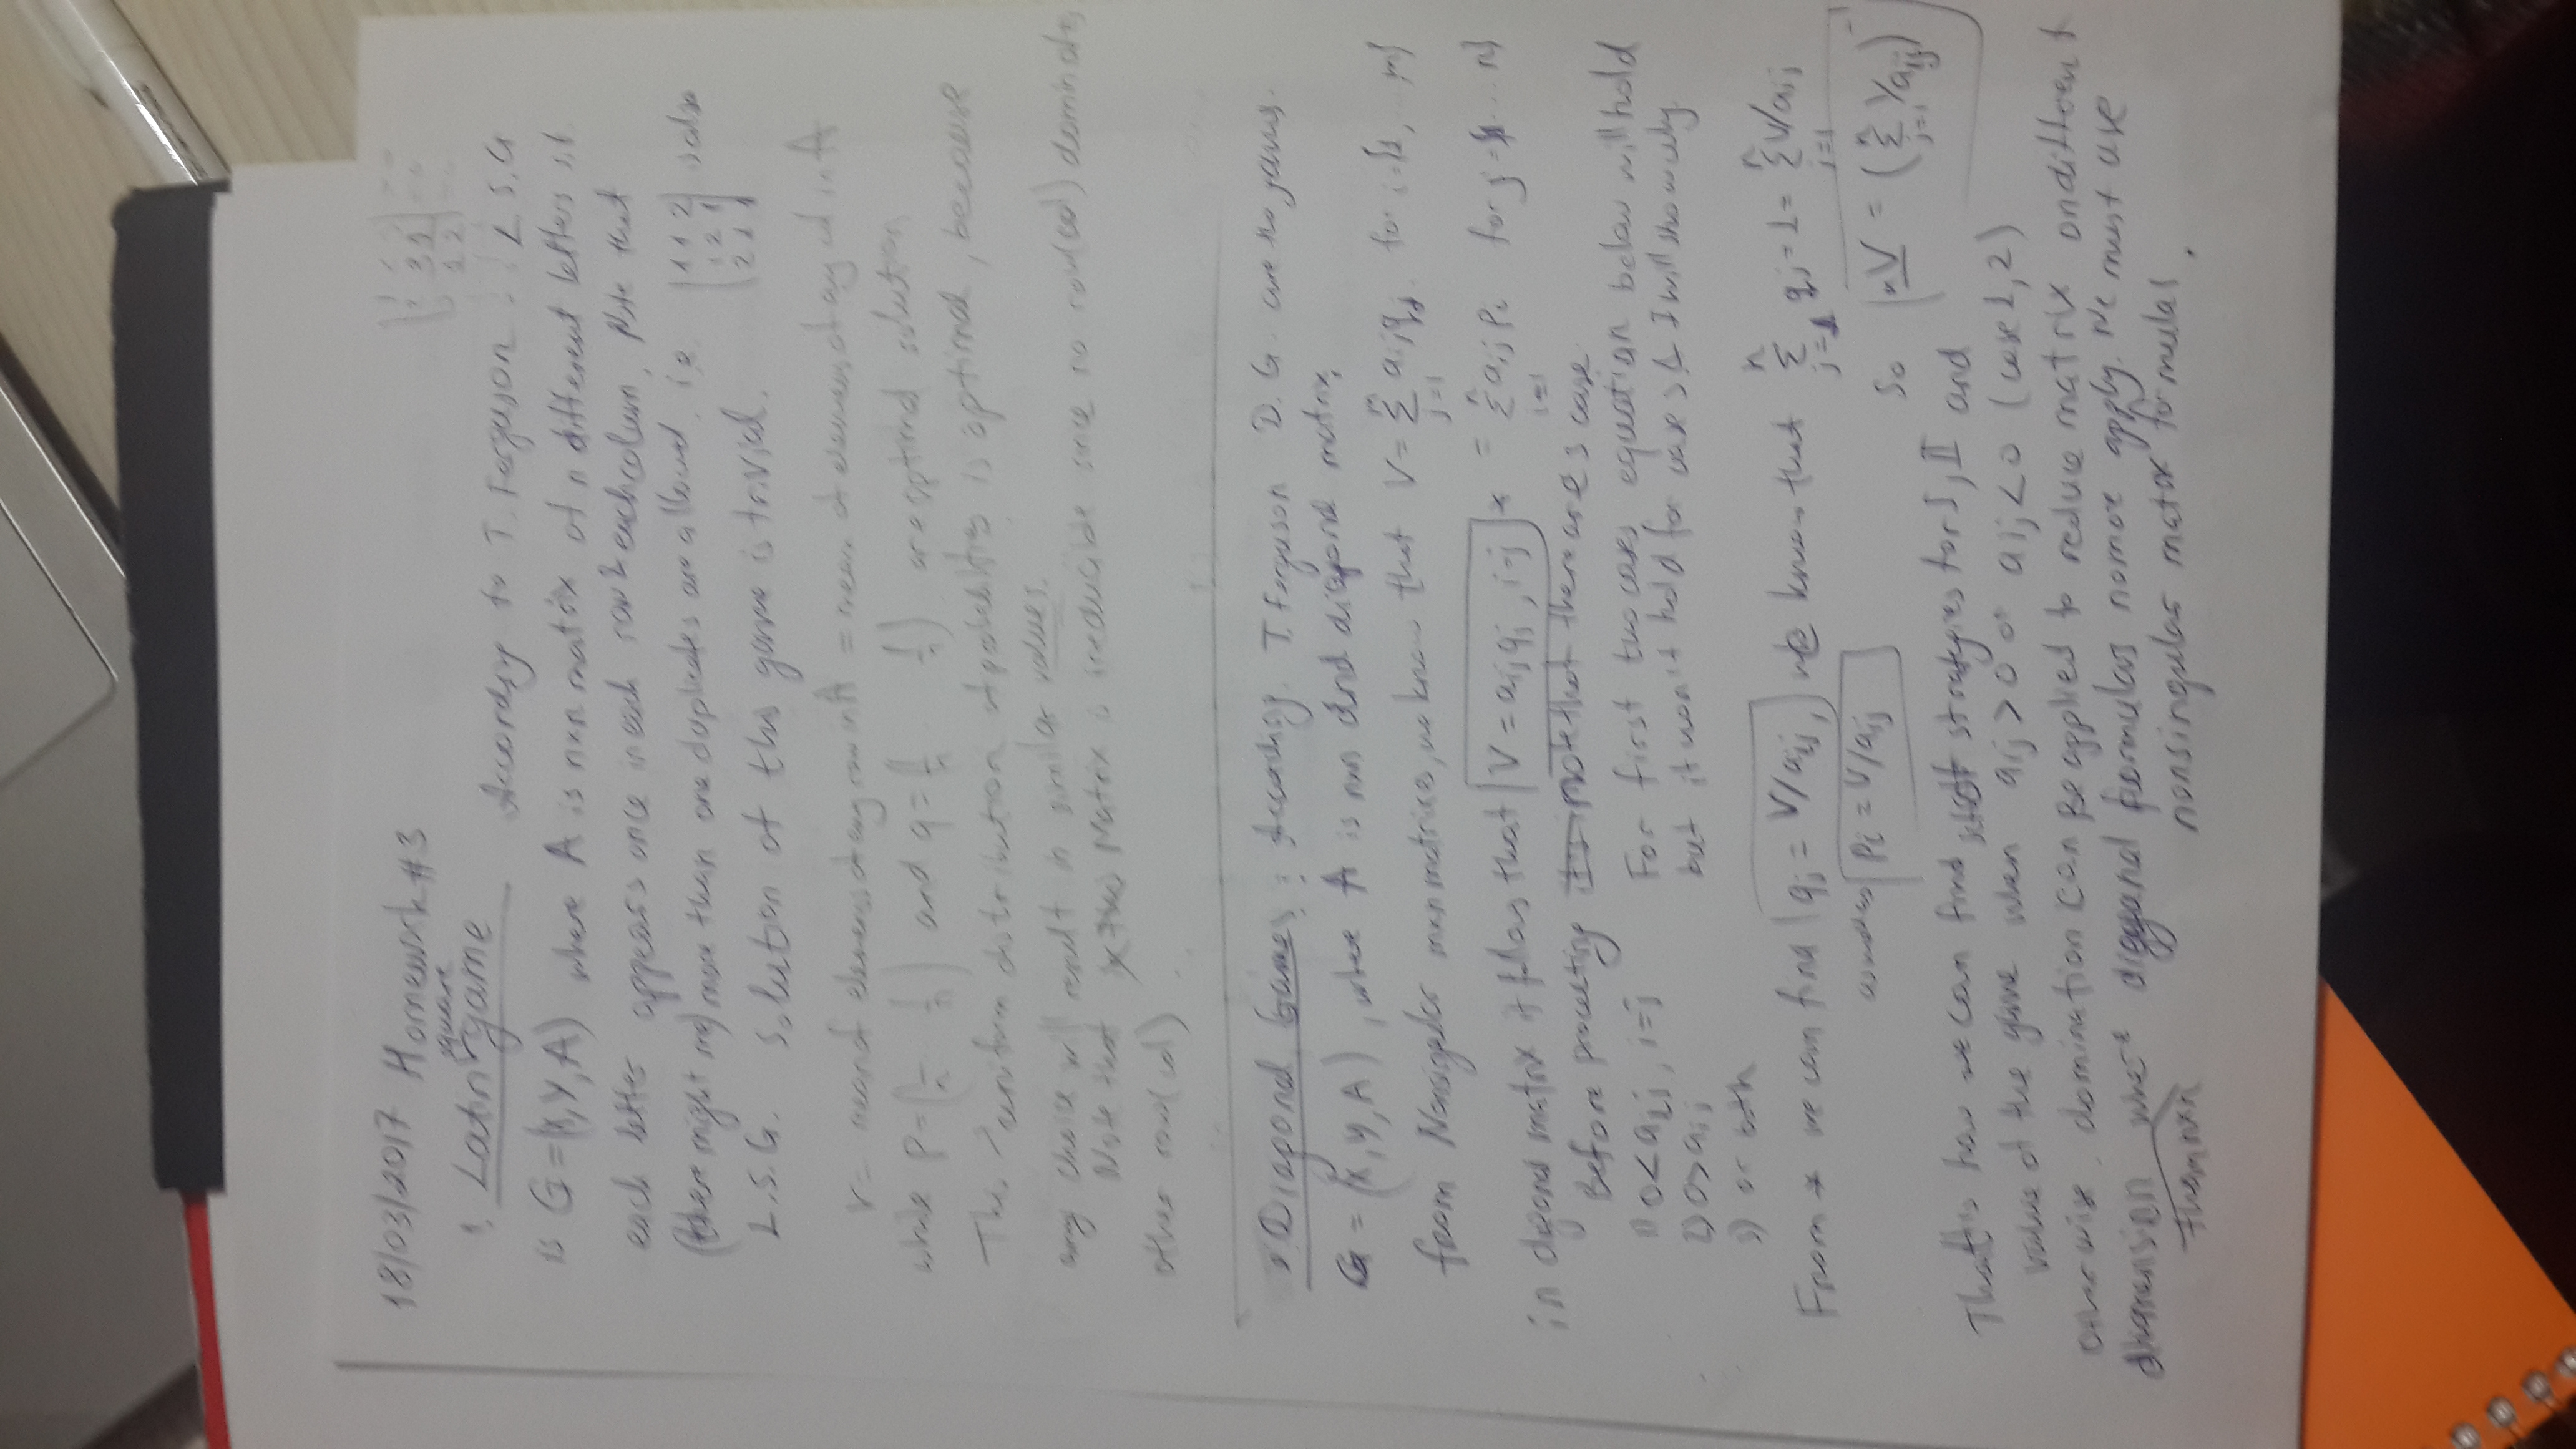 18/03/2017 Homework #3
1. Latin square game According to T. Ferguson L.S.G
is G=(X,Y,A) where A is nxn matrix of n different letters s.t.
each letter appears once in each row & each colum, Note that
(there might me) more than one duplicates are allowed i.e. 1 1 2 is also
1 2 1
2 1 1
L.S.G. Solution of this game is trivial.
V= mean of elements of any row in A = mean of elements of any col in A
while P=(1/n 1/n) and q=(1/n 1/n) are optimal solution
The uniform distribution of probabilities is optimal, because
any choice will result in similar values.
Note that this Matrix is ireducible since no row(col) dominates
other row(col)
2. Diagonal Games: According T. Ferguson D.G. are the games
G = (X,Y,A), where A is nxn and diagonal matrix,
from Nonsingular mxn matrices, we know that V = Σ aij qj for i={1,...m}
j=1
in digonal matrix it follows that V = aij qj, i=j * = Σ aij pi for j= ... n}
i=1
Before proceeting note that there are 3 case
1) 0<aij, i=j For first two cases equation below will hold
2) 0>aij but it won't hold for case 3 & I will show why.
3) or both
From * we can find qj = V/aij, we know that Σ qj = 1 = Σ V/aij
pi = V/aij So V = (Σ 1/aij)⁻¹
That's how we can find strategies for I, II and
value of the game when aij>0 or aij<0 (case 1,2)
Otherwise domination can be applied to reduce matrix on different
dhamension where diggand formulas nomore apply. We must use
than nxn nonsingular matrix formulas.